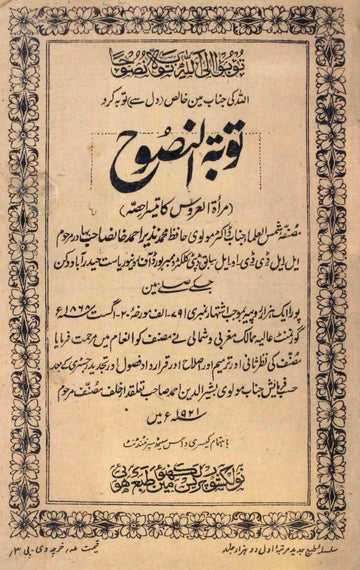 توبوا الی اللہ توبۃ نصوحا
اللہ کی جناب مین خالص (دل سے) توبہ کرو
توبۃ النصوح
(مرأۃ العروس کا تیسرا حصہ)
مصنفہ شمس العلما جناب ڈاکٹر مولوی حافظ محمد نذیر احمد خانصاحب بہادر مرحوم
ایل ایل ڈی، ڈی، او، ایل سابق ڈپٹی کلکٹر و ممبر بورڈ آف ریونیو ریاست حیدرآباد دکن
جسکے صلے مین
پورا ایک ہزار روپیہ بموجب اشتہار نمبری ۷۹۱-الف مورخہ ۲۰-اگست ۱۸۶۸ء
گورنمنٹ عالیہ ممالک مغربی و شمالی نے مصنف کو انعام مین مرحمت فرمایا
مصنف کی نظر ثانی اور ترمیم اور اصلاح اور قرارداد فصول اور تجدید رجسٹری کے بعد
حسب فرمایش جناب مولوی بشیر الدین احمد صاحب تعلقدار خلف مصنف مرحوم
۱۹۲۱ء مین
باہتمام کیسری داس سیٹھ سپرنٹنڈنٹ
نولکشور پریس لکھنؤ مین طبع ہوئی
سلسلہ طبع جدید مرتبہ اول دو ہزار جلد
قیمت خرچہ وی، پی ۳؍